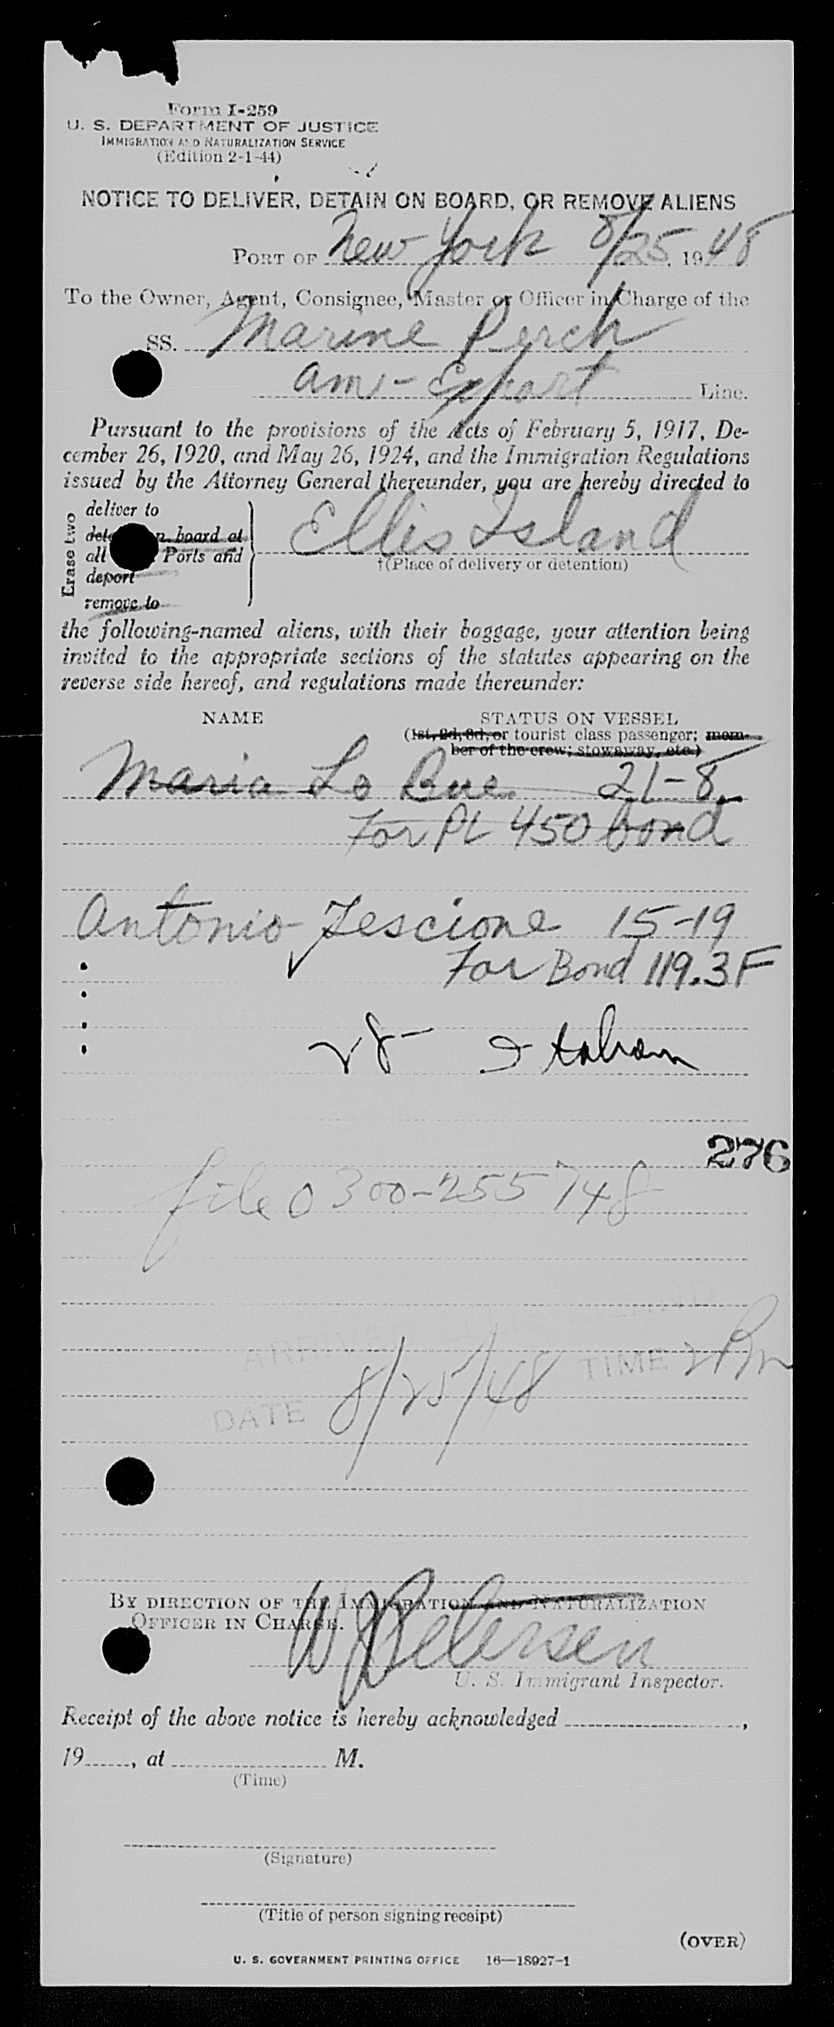 Form I-259
U. S. DEPARTMENT OF JUSTICE
IMMIGRATION AND NATURALIZATION SERVICE
(Edition 2-1-44)
NOTICE TO DELIVER, DETAIN ON BOARD, OR REMOVE ALIENS
PORT OF New York 8/25, 1948
To the Owner, Agent, Consignee, Master or Officer in Charge of the
SS. Marine Perch
Am-Export Line.
Pursuant to the provisions of the Acts of February 5, 1917, De-
cember 26, 1920, and May 26, 1924, and the Immigration Regulations
issued by the Attorney General thereunder, you are hereby directed to
Erase two
deliver to
board at
all Ports and
deport
remove to
Ellis Island
†(Place of delivery or detention)
the following-named aliens, with their baggage, your attention being
invited to the appropriate sections of the statutes appearing on the
reverse side hereof, and regulations made thereunder:
NAME STATUS ON VESSEL
(1st, 2d, 3d, or tourist class passenger; mem-
ber of the crew; stowaway, etc.)
Maria Lo Bue 21-8
For PL 450 bond
Antonio Tescione 15-19
For Bond 119.3F
28 Italian
276
file 0300-255748
ARRIVED
DATE 8/25/48 TIME 2 Pm
BY DIRECTION OF THE IMMIGRATION AND NATURALIZATION
OFFICER IN CHARGE.
W J Petersen
U. S. Immigrant Inspector.
Receipt of the above notice is hereby acknowledged ,
19 , at M.
(Time)
(Signature)
(Title of person signing receipt)
(OVER)
U. S. GOVERNMENT PRINTING OFFICE 16—18927-1